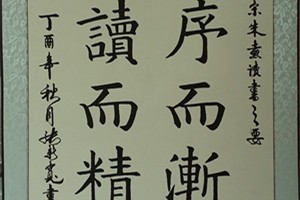 宗朱熹读書之要
序而漸
讀而精
丁酉年秋月
書